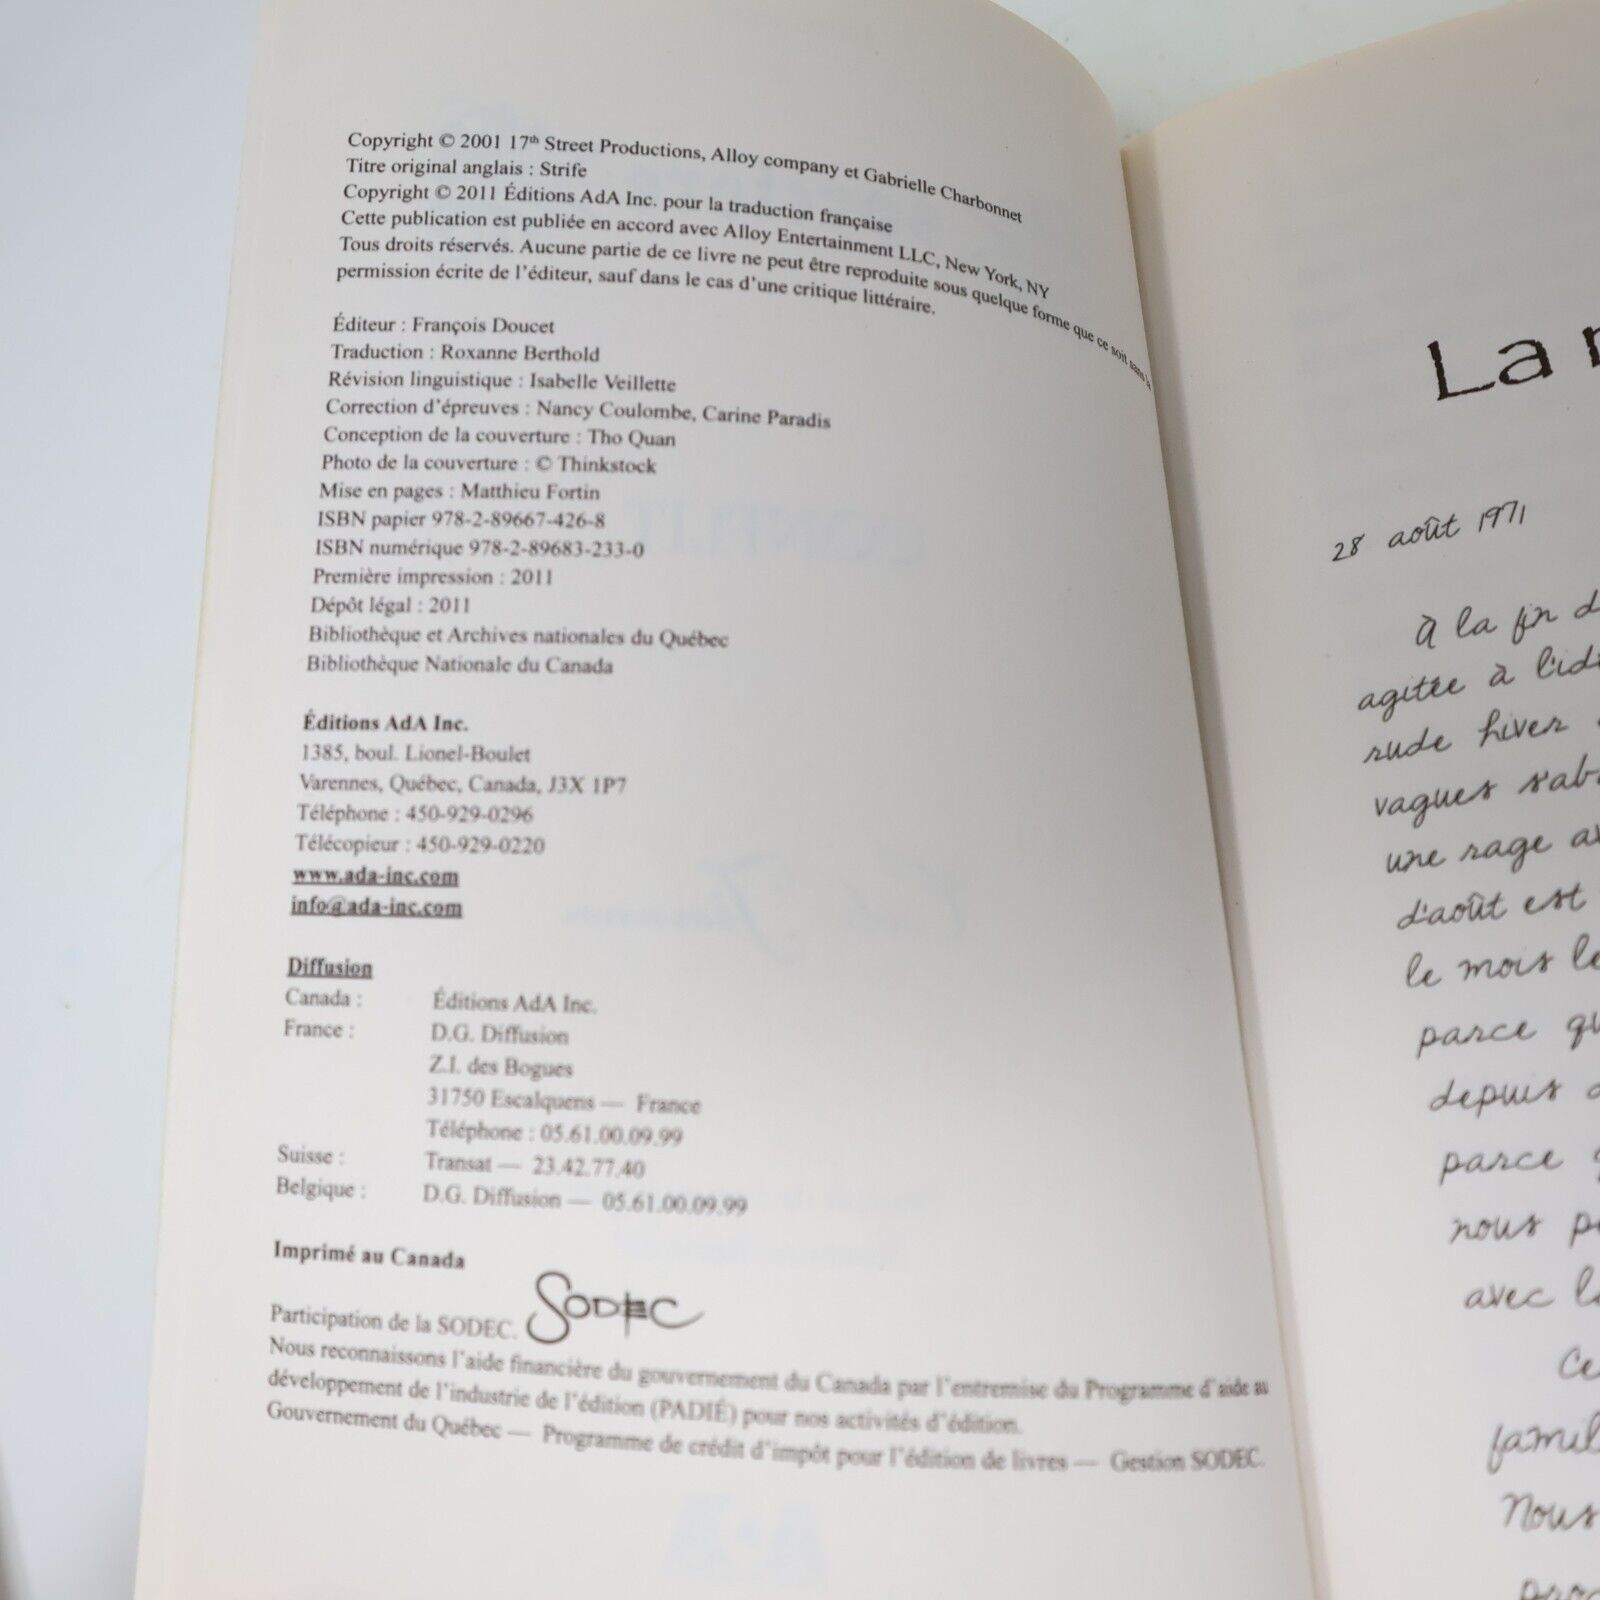 Copyright © 2001 17th Street Productions, Alloy company et Gabrielle Charbonnet
Titre original anglais : Strife
Copyright © 2011 Éditions AdA Inc. pour la traduction française
Cette publication est publiée en accord avec Alloy Entertainment LLC, New York, NY
Tous droits réservés. Aucune partie de ce livre ne peut être reproduite sous quelque forme que ce soit sans la
permission écrite de l'éditeur, sauf dans le cas d'une critique littéraire.
Éditeur : François Doucet
Traduction : Roxanne Berthold
Révision linguistique : Isabelle Veillette
Correction d'épreuves : Nancy Coulombe, Carine Paradis
Conception de la couverture : Tho Quan
Photo de la couverture : © Thinkstock
Mise en pages : Matthieu Fortin
ISBN papier 978-2-89667-426-8
ISBN numérique 978-2-89683-233-0
Première impression : 2011
Dépôt légal : 2011
Bibliothèque et Archives nationales du Québec
Bibliothèque Nationale du Canada
Éditions AdA Inc.
1385, boul. Lionel-Boulet
Varennes, Québec, Canada, J3X 1P7
Téléphone : 450-929-0296
Télécopieur : 450-929-0220
www.ada-inc.com
info@ada-inc.com
Diffusion
Canada : Éditions AdA Inc.
France : D.G. Diffusion
Z.I. des Bogues
31750 Escalquens — France
Téléphone : 05.61.00.09.99
Suisse : Transat — 23.42.77.40
Belgique : D.G. Diffusion — 05.61.00.09.99
Imprimé au Canada
Participation de la SODEC. SODEC
Nous reconnaissons l'aide financière du gouvernement du Canada par l'entremise du Programme d'aide au
développement de l'industrie de l'édition (PADIÉ) pour nos activités d'édition.
Gouvernement du Québec — Programme de crédit d'impôt pour l'édition de livres — Gestion SODEC.
La
28 août 1971
À la fin
agitée à
rude hiver
vagues
une rage
d'août est
le mois
parce
depuis
parce
nous
avec
Nous